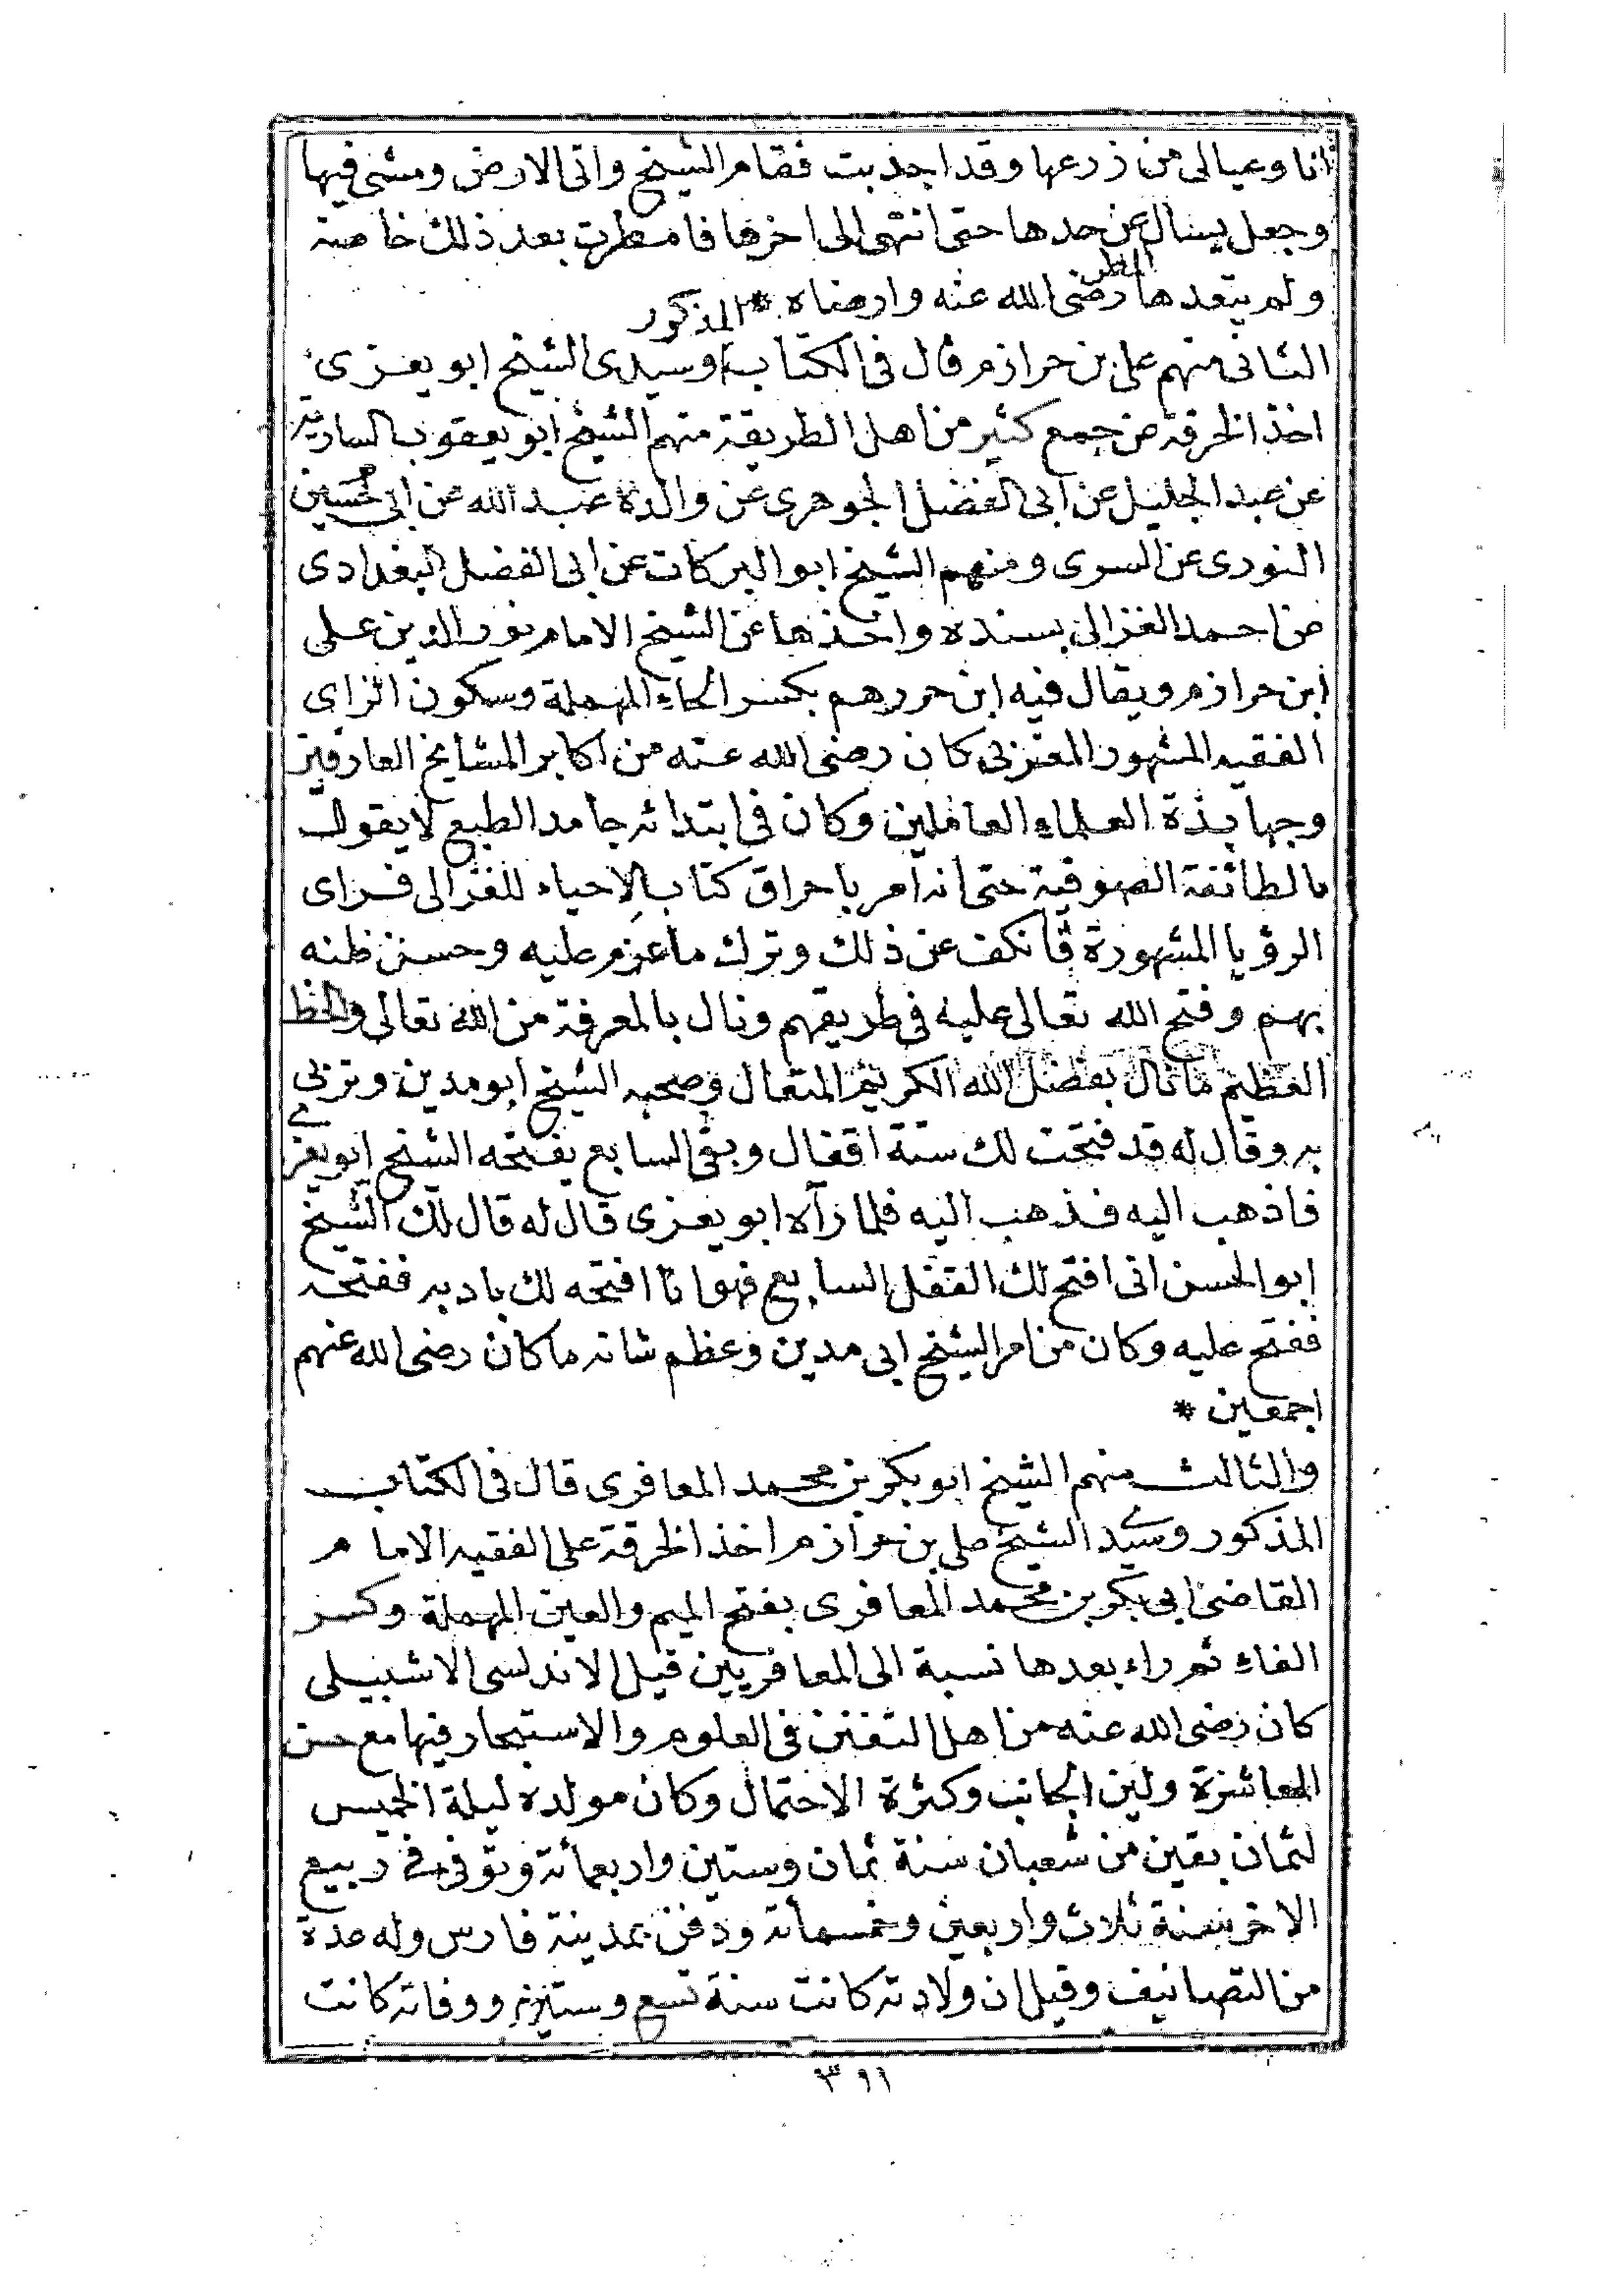 انا وعيالى من زرعها وقد اجذبت فقام الشيخ واتى الارض ومشى فيها
وجعل يسال عن حدها حتى انتهى الى اخرها فامطرت بعد ذلك خاصة
ولم يتعدها المطر رضى الله عنه وارضاه *
الثانى منهم على بن حرازم قال فى الكتاب المذكور وسيدى الشيخ ابو يعزى
اخذ الخرقة من جمع كثير من اهل الطريقة منهم الشيخ ابو يعقوب السارية
عن عبد الجليل عن ابى الفضل الجوهرى عن والده عبد الله عن ابى حسين
النورى عن السرى ومنهم الشيخ ابو البركات عن ابى الفضل البغدادى
من احمد الغزالى بسنده واخذها عن الشيخ الامام نور الدين على
ابن حرازم ويقال فيه ابن حررهم بكسر الحاء المهملة وسكون الزاى
الفقيه المشهور المغربى كان رضى الله عنه من اكابر المشايخ العارفين
وجهابذة العلماء العاملين وكان فى ابتدائه جامد الطبع لا يقول
بالطائفة الصوفية حتى انه امر باحراق كتاب الاحياء للغزالى فراى
الرؤيا المشهورة فانكف عن ذلك وترك ما عزم عليه وحسن ظنه
بهم وفتح الله تعالى عليه فى طريقهم ونال بالمعرفة من الله تعالى والحظ
العظيم ما نال بفضل الله الكريم المتعال وصحبه الشيخ ابو مدين وتربى
به وقال له قد فتحت لك ستة اقفال وبقى السابع يفتحه الشيخ ابو يعزى
فاذهب اليه فذهب اليه فلما رآه ابو يعزى قال له قال لك الشيخ
ابو الحسن انى افتح لك القفل السابع فهوانا افتحه لك بادبه ففتحه
ففتح عليه وكان من امر الشيخ ابى مدين وعظم شانه ما كان رضى الله عنهم
اجمعين *
والثالث منهم الشيخ ابو بكر بن محمد المعافرى قال فى الكتاب
المذكور وسيدى الشيخ على بن حرازم اخذ الخرقة على الفقيه الامام
القاضى ابى بكر بن محمد المعافرى بفتح الميم والعين المهملة وكسر
الفاء ثم راء بعدها نسبة الى المعافريين قيل الاندلسى الاشبيلى
كان رضى الله عنه من اهل التفنن فى العلوم والاستبحار فيها مع حسن
المعاشرة ولين الجانب وكثرة الاحتمال وكان مولده ليلة الخميس
لثمان بقين من شعبان سنة ثمان وستين واربعمائة وتوفى فى ربيع
الاخر سنة ثلاث واربعين وخمسمائة ودفن بمدينة فارس وله عدة
من التصانيف وقيل ان ولادته كانت سنة تسع وستين ووفاته كانت
٣٩١